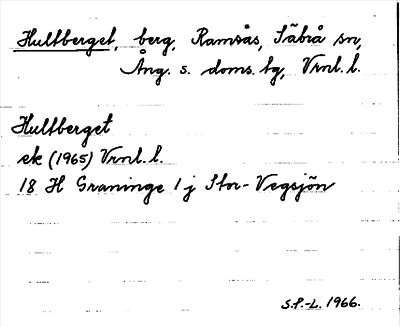 Hultberget, berg, Ramsås, Säbrå sn,
Ång. s. doms. tg, Vrnl. l.
Hultberget
ek (1965) Vrnl. l.
18 H Graninge 1 j Stor-Vegsjön
S.P.-L. 1966.